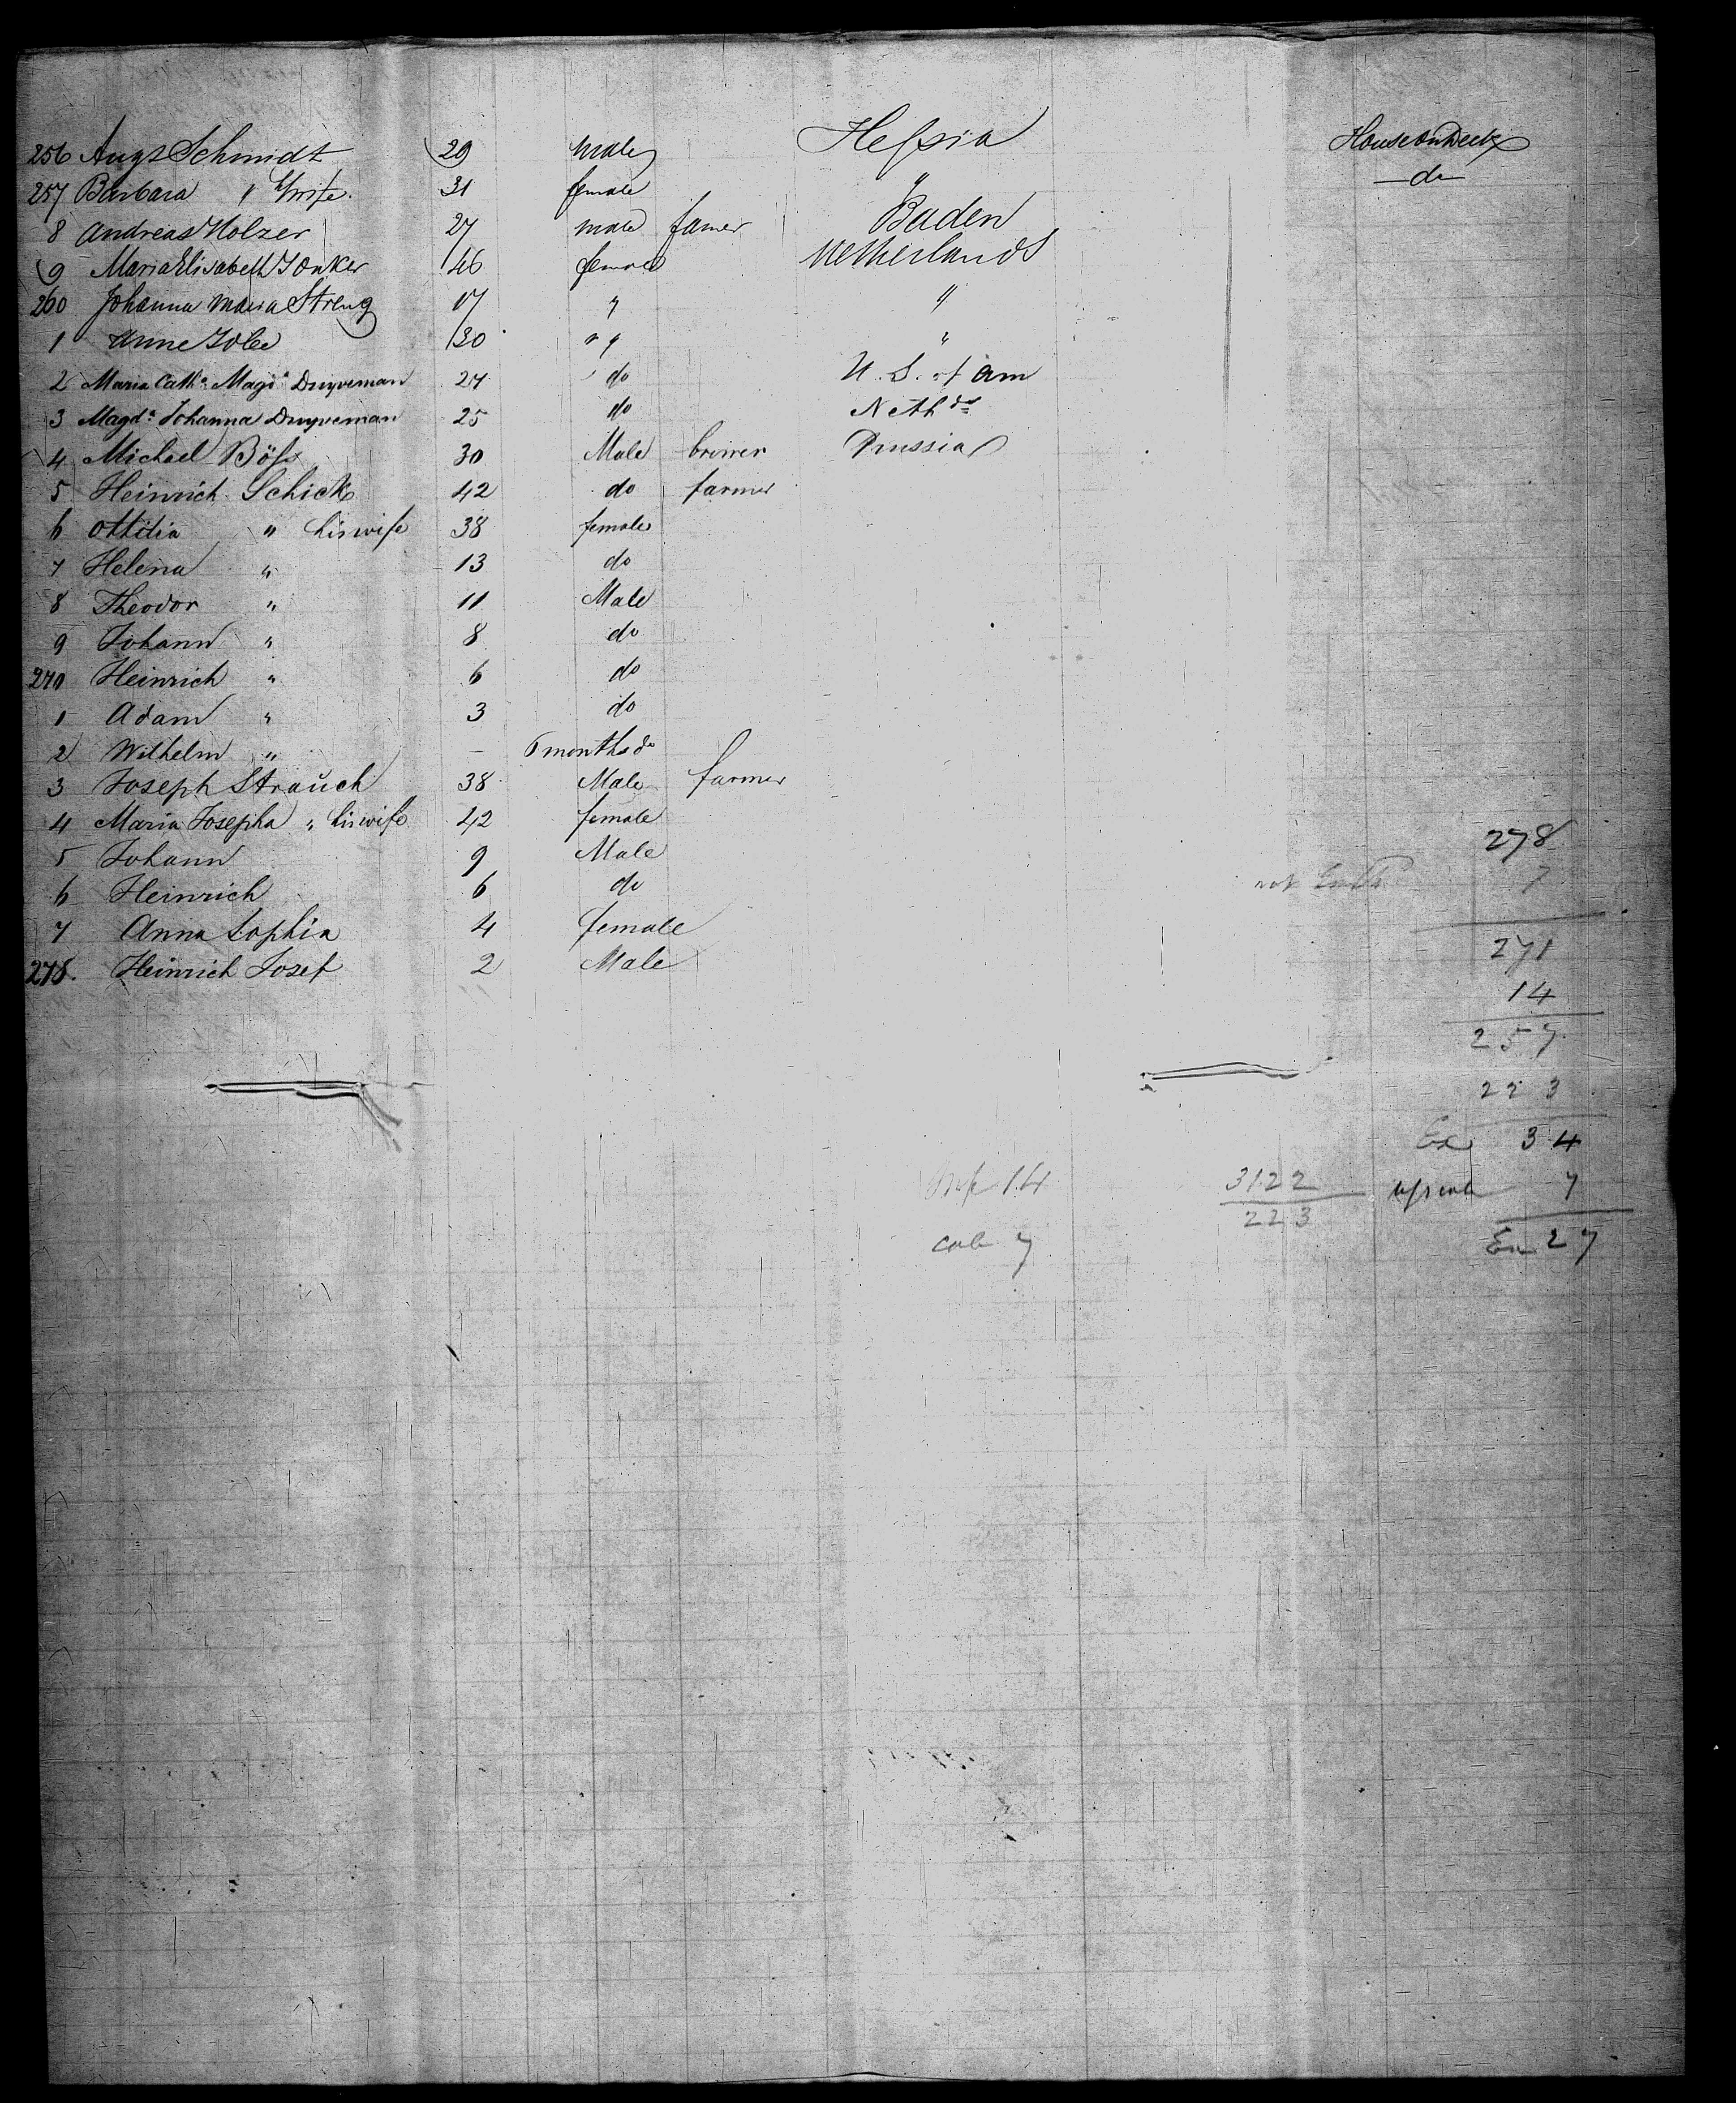 256 Augt Schmidt 29 male Hessia House on Deck
257 Barbara " wife 31 female " do
8 Andreas Holzer 27 male famer Baden
9 Maria Elisabeth Jonker 46 female Netherlands
260 Johanna Maria Streng 17 " "
1 Anne 30 " "
2 Maria Cath.a Magd.a Duyveman 27 do U. S. of Am
3 Magd.a Johanna Duyveman 25 do Nethds
4 Michael Böss 30 Male brewer Prussia
5 Heinrich Schick 42 do farmer
6 Ottilia " his wife 38 female
7 Helena " 13 do
8 Theodor " 11 Male
9 Johann " 8 do
270 Heinrich " 6 do
1 Adam " 3 do
2 Wilhelm " – 6 months do
3 Joseph Strauch 38 Male farmer
4 Maria Josepha " his wife 42 female
5 Johann 9 Male
6 Heinrich 6 do
7 Anna Sophia 4 female
278. Heinrich Josef 2 Male
278
not 7
271
14
257
223
Ex 34
14 3122 7
223
cab 7 Ex 27